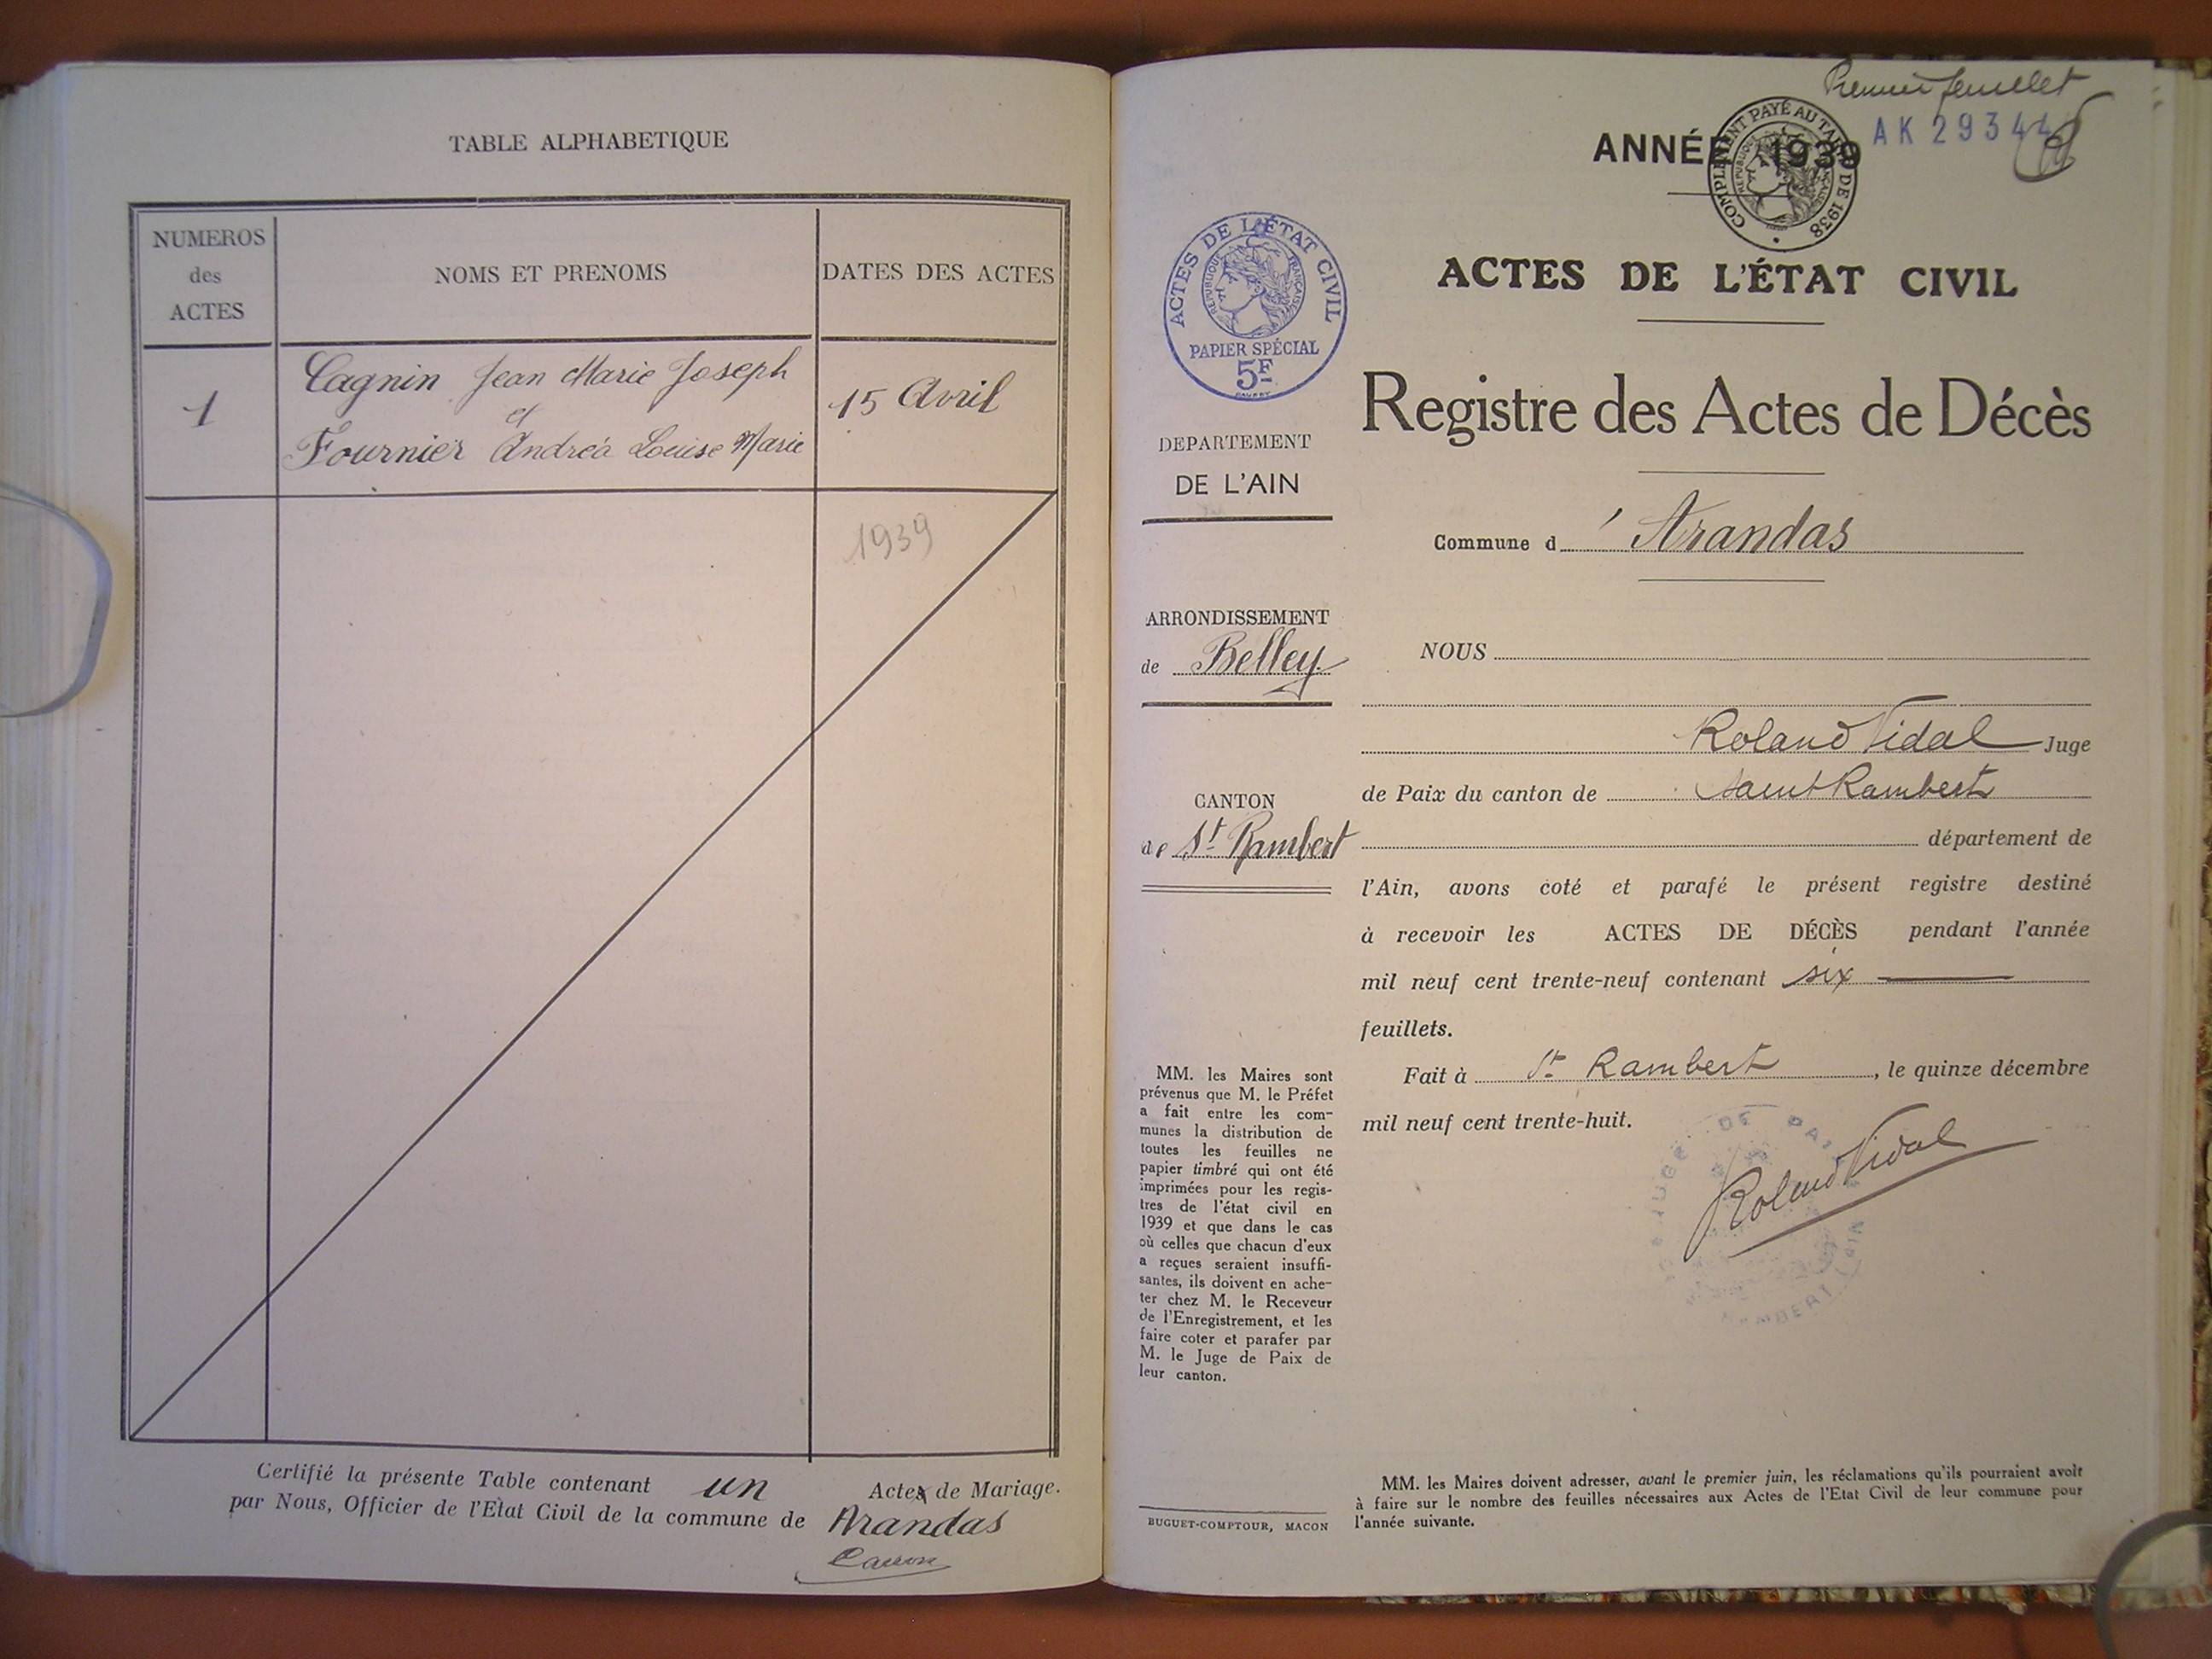 TABLE ALPHABETIQUE
NUMEROS
des
ACTES
NOMS ET PRENOMS
DATES DES ACTES
1
Cagnin Jean Marie Joseph
et
Fournier Andréa Louise Marie
15 Avril
1939
Certifié la présente Table contenant un Actes de Mariage.
par Nous, Officier de l'Etat Civil de la commune de Arandas
Premier feuillet
AK 2934
ANNÉE 1939
COMPLEMENT PAYÉ AU TARIF DE 1938
RÉPUBLIQUE FRANÇAISE
ACTES DE L'ÉTAT CIVIL
RÉPUBLIQUE FRANÇAISE
PAPIER SPÉCIAL
5F
ACTES DE L'ÉTAT CIVIL
Registre des Actes de Décès
DEPARTEMENT
DE L'AIN
Commune d' Arandas
ARRONDISSEMENT
de Belley
CANTON
de St Rambert
NOUS
Roland Vidal Juge
de Paix du canton de Saint Rambert
département de
l'Ain, avons coté et parafé le présent registre destiné
à recevoir les ACTES DE DÉCÈS pendant l'année
mil neuf cent trente-neuf contenant six
feuillets.
Fait à St Rambert, le quinze décembre
mil neuf cent trente-huit.
Roland Vidal
MM. les Maires sont
prévenus que M. le Préfet
a fait entre les com-
munes la distribution de
toutes les feuilles ne
papier timbré qui ont été
imprimées pour les regis-
tres de l'état civil en
1939 et que dans le cas
où celles que chacun d'eux
a reçues seraient insuffi-
santes, ils doivent en ache-
ter chez M. le Receveur
de l'Enregistrement, et les
faire coter et parafer par
M. le Juge de Paix de
leur canton.
BUGUET-COMPTOUR, MACON
MM. les Maires doivent adresser, avant le premier juin, les réclamations qu'ils pourraient avoir
à faire sur le nombre des feuilles nécessaires aux Actes de l'Etat Civil de leur commune pour
l'année suivante.